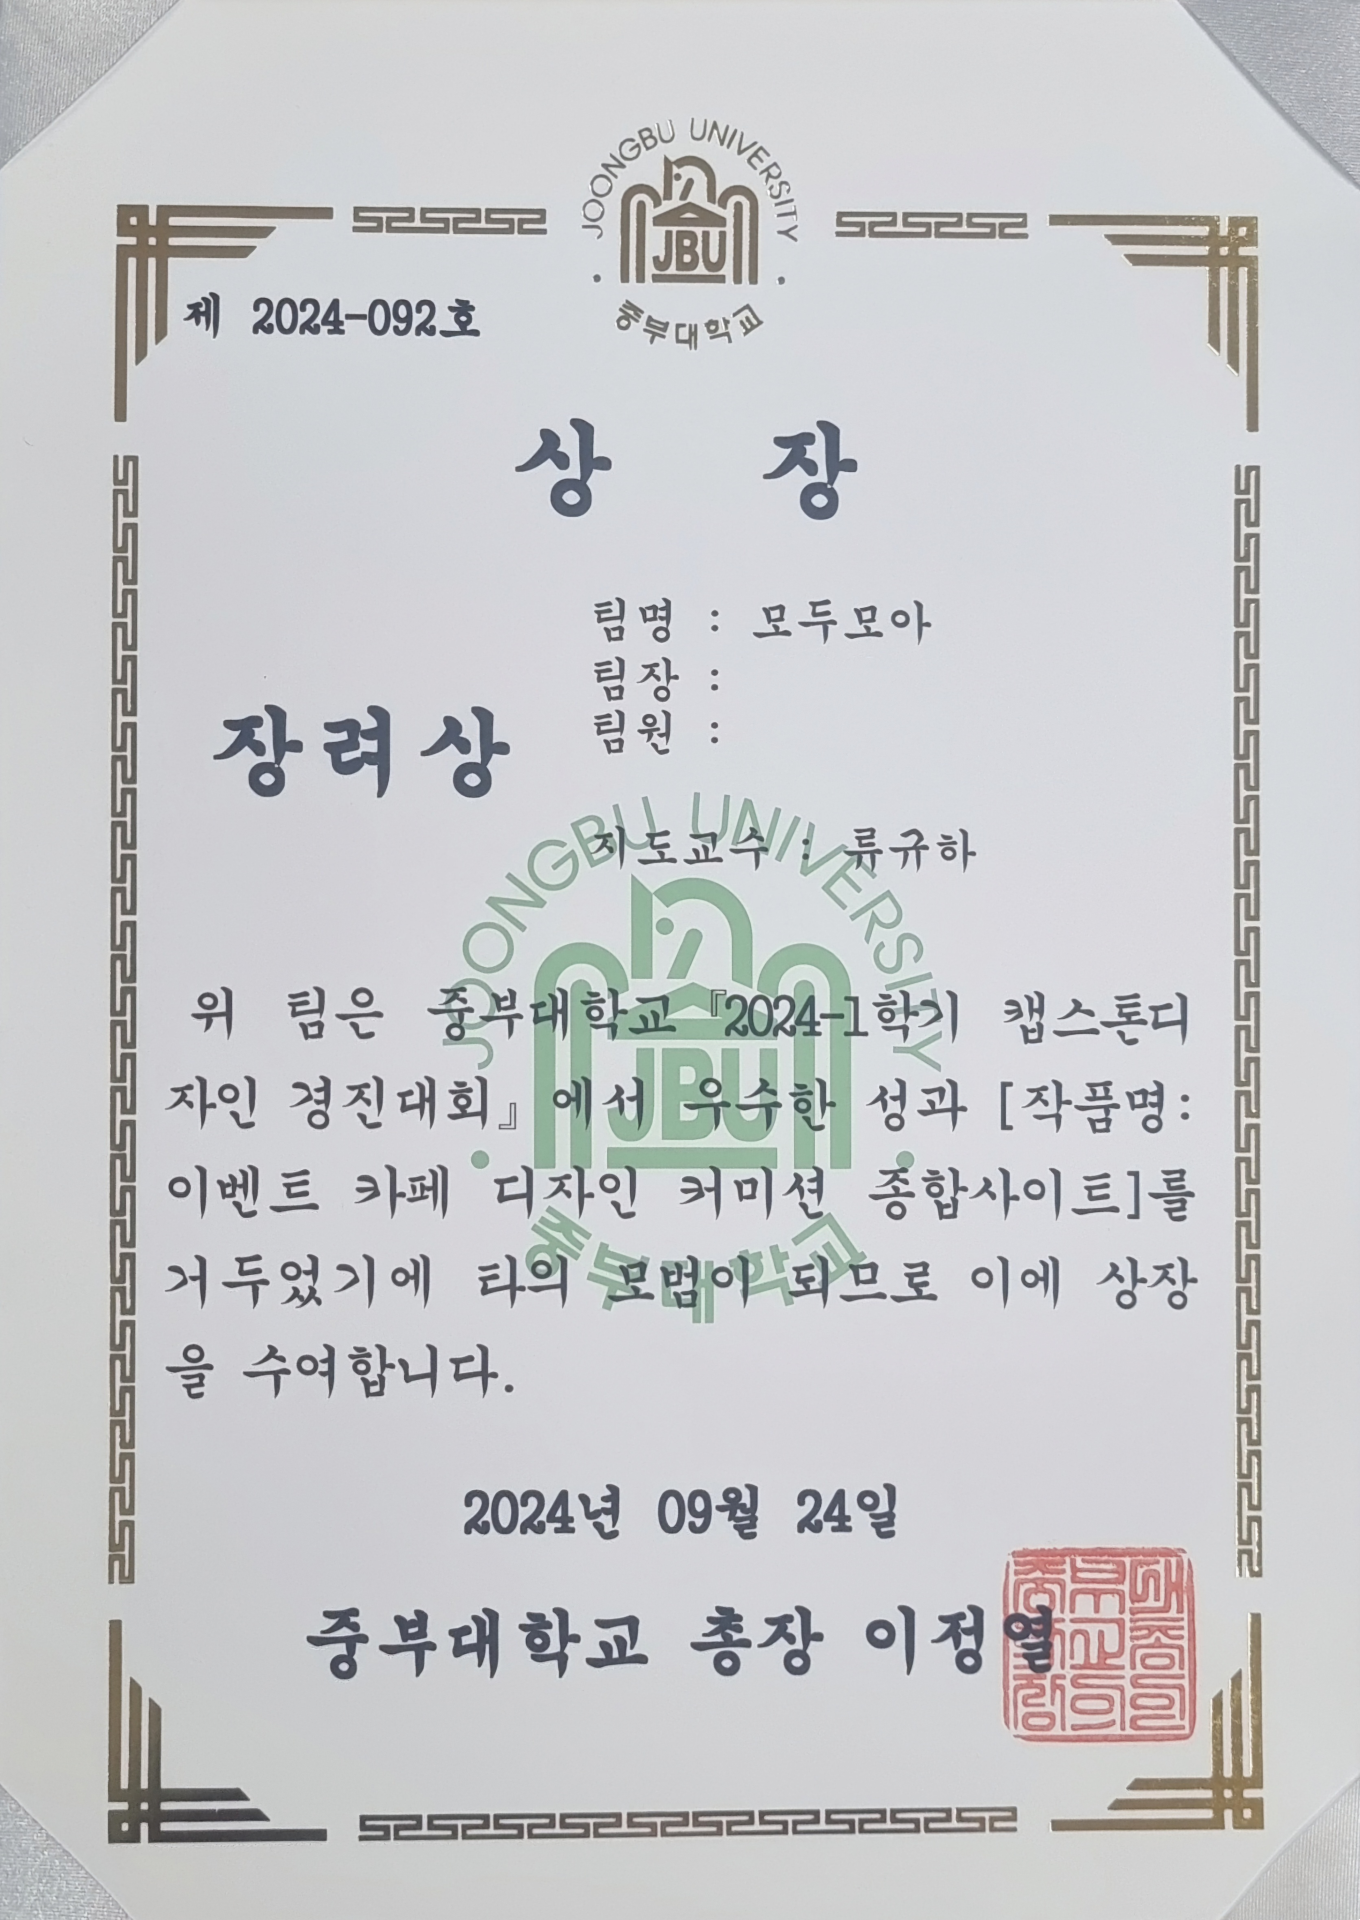 JOONGBU UNIVERSITY
JBU
중부대학교
제 2024-092호
상 장
팀명 : 모두모아
팀장 :
팀원 :
장려상
지도교수 : 류규하
JOONGBU UNIVERSITY
JBU
중부대학교
위 팀은 중부대학교『2024-1학기 캡스톤디
자인 경진대회』에서 우수한 성과 [작품명:
이벤트 카페 디자인 커미션 종합사이트]를
거두었기에 타의 모범이 되므로 이에 상장
을 수여합니다.
2024년 09월 24일
중부대학교 총장 이정열